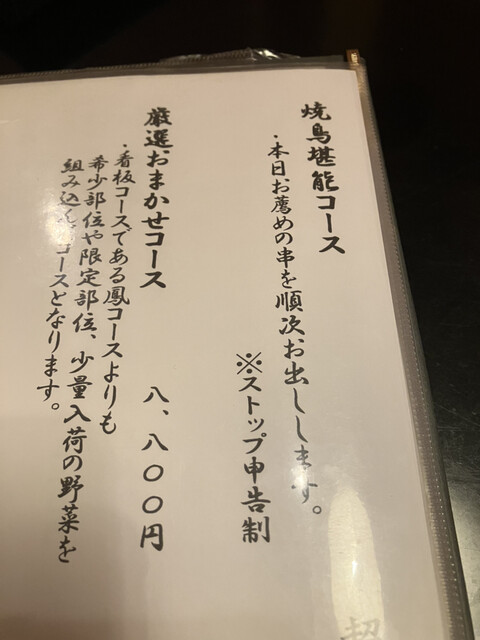 焼鳥堪能コース
・本日お薦めの串を順次お出しします。
※ストップ申告制
厳選おまかせコース
八、八〇〇円
・看板コースである鳳コースよりも
希少部位や限定部位、少量入荷の野菜を
組み込んだコースとなります。